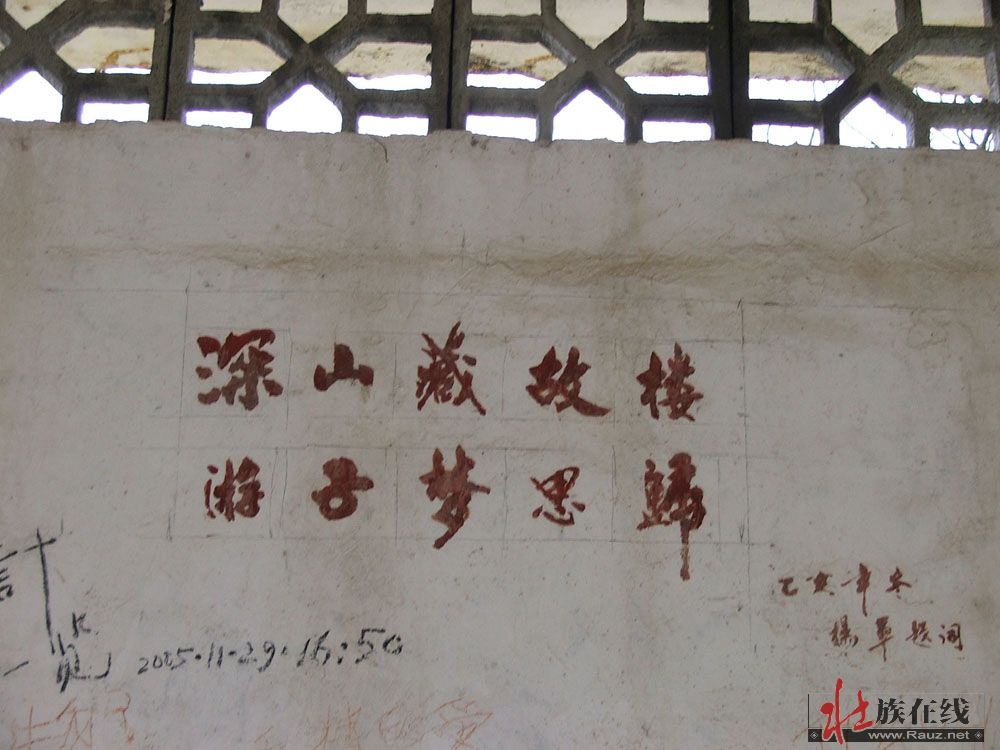 深山藏故楼
游子梦思歸
乙亥年冬
楊軍题词
計
2005·11·29·16:50
壮族在线
www.Rauz.net